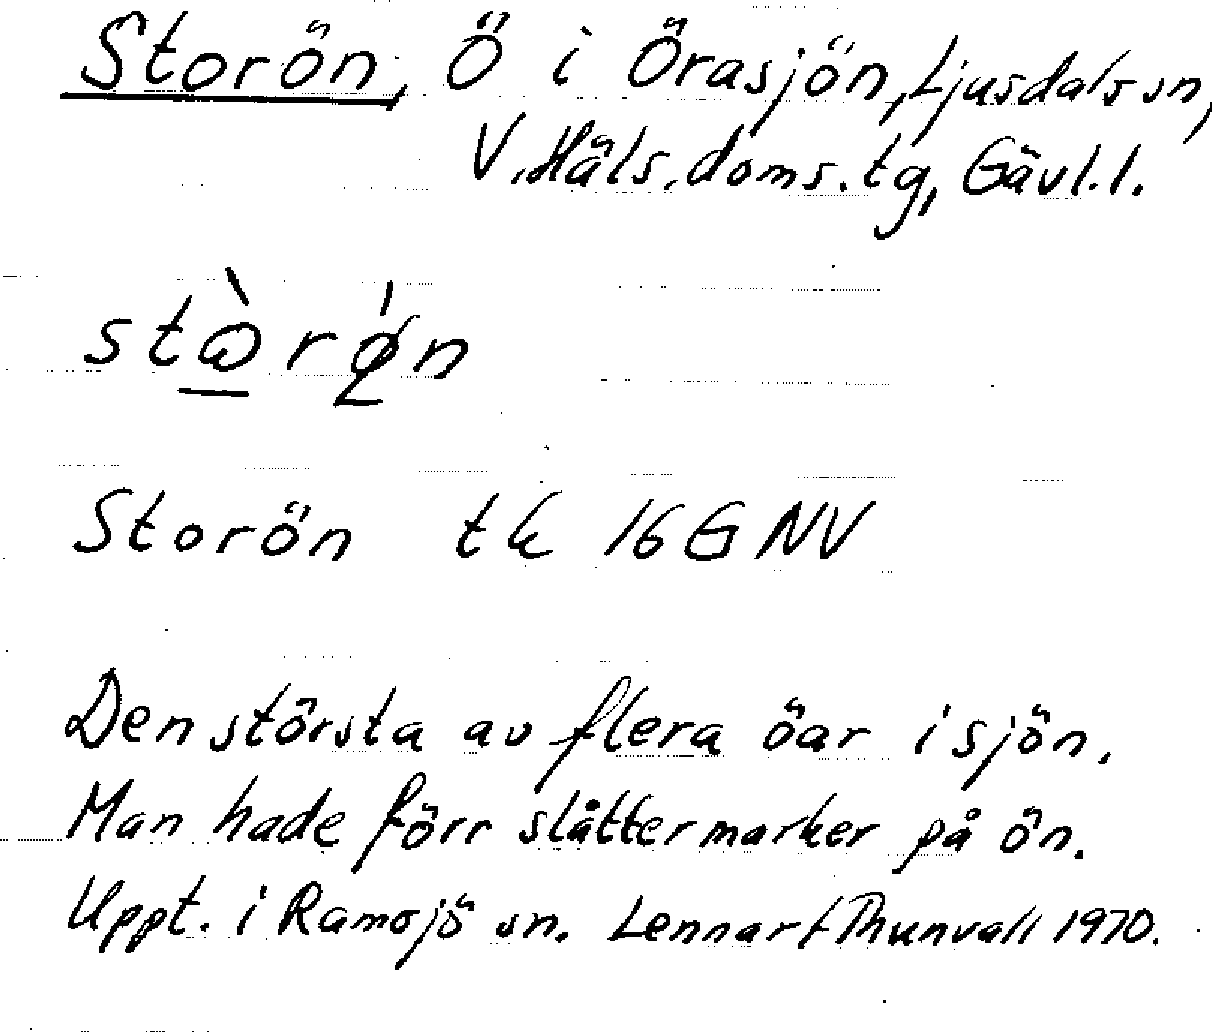 Storön, Ö i Örasjön, Ljusdals sn,
V. Häls. doms. tg, Gävl. l.
Storön tk 16G NV
Den största av flera öar i sjön.
Man hade förr slåttermarker på ön.
Uppt. i Ramsjö sn. Lennart Thunvall 1970.